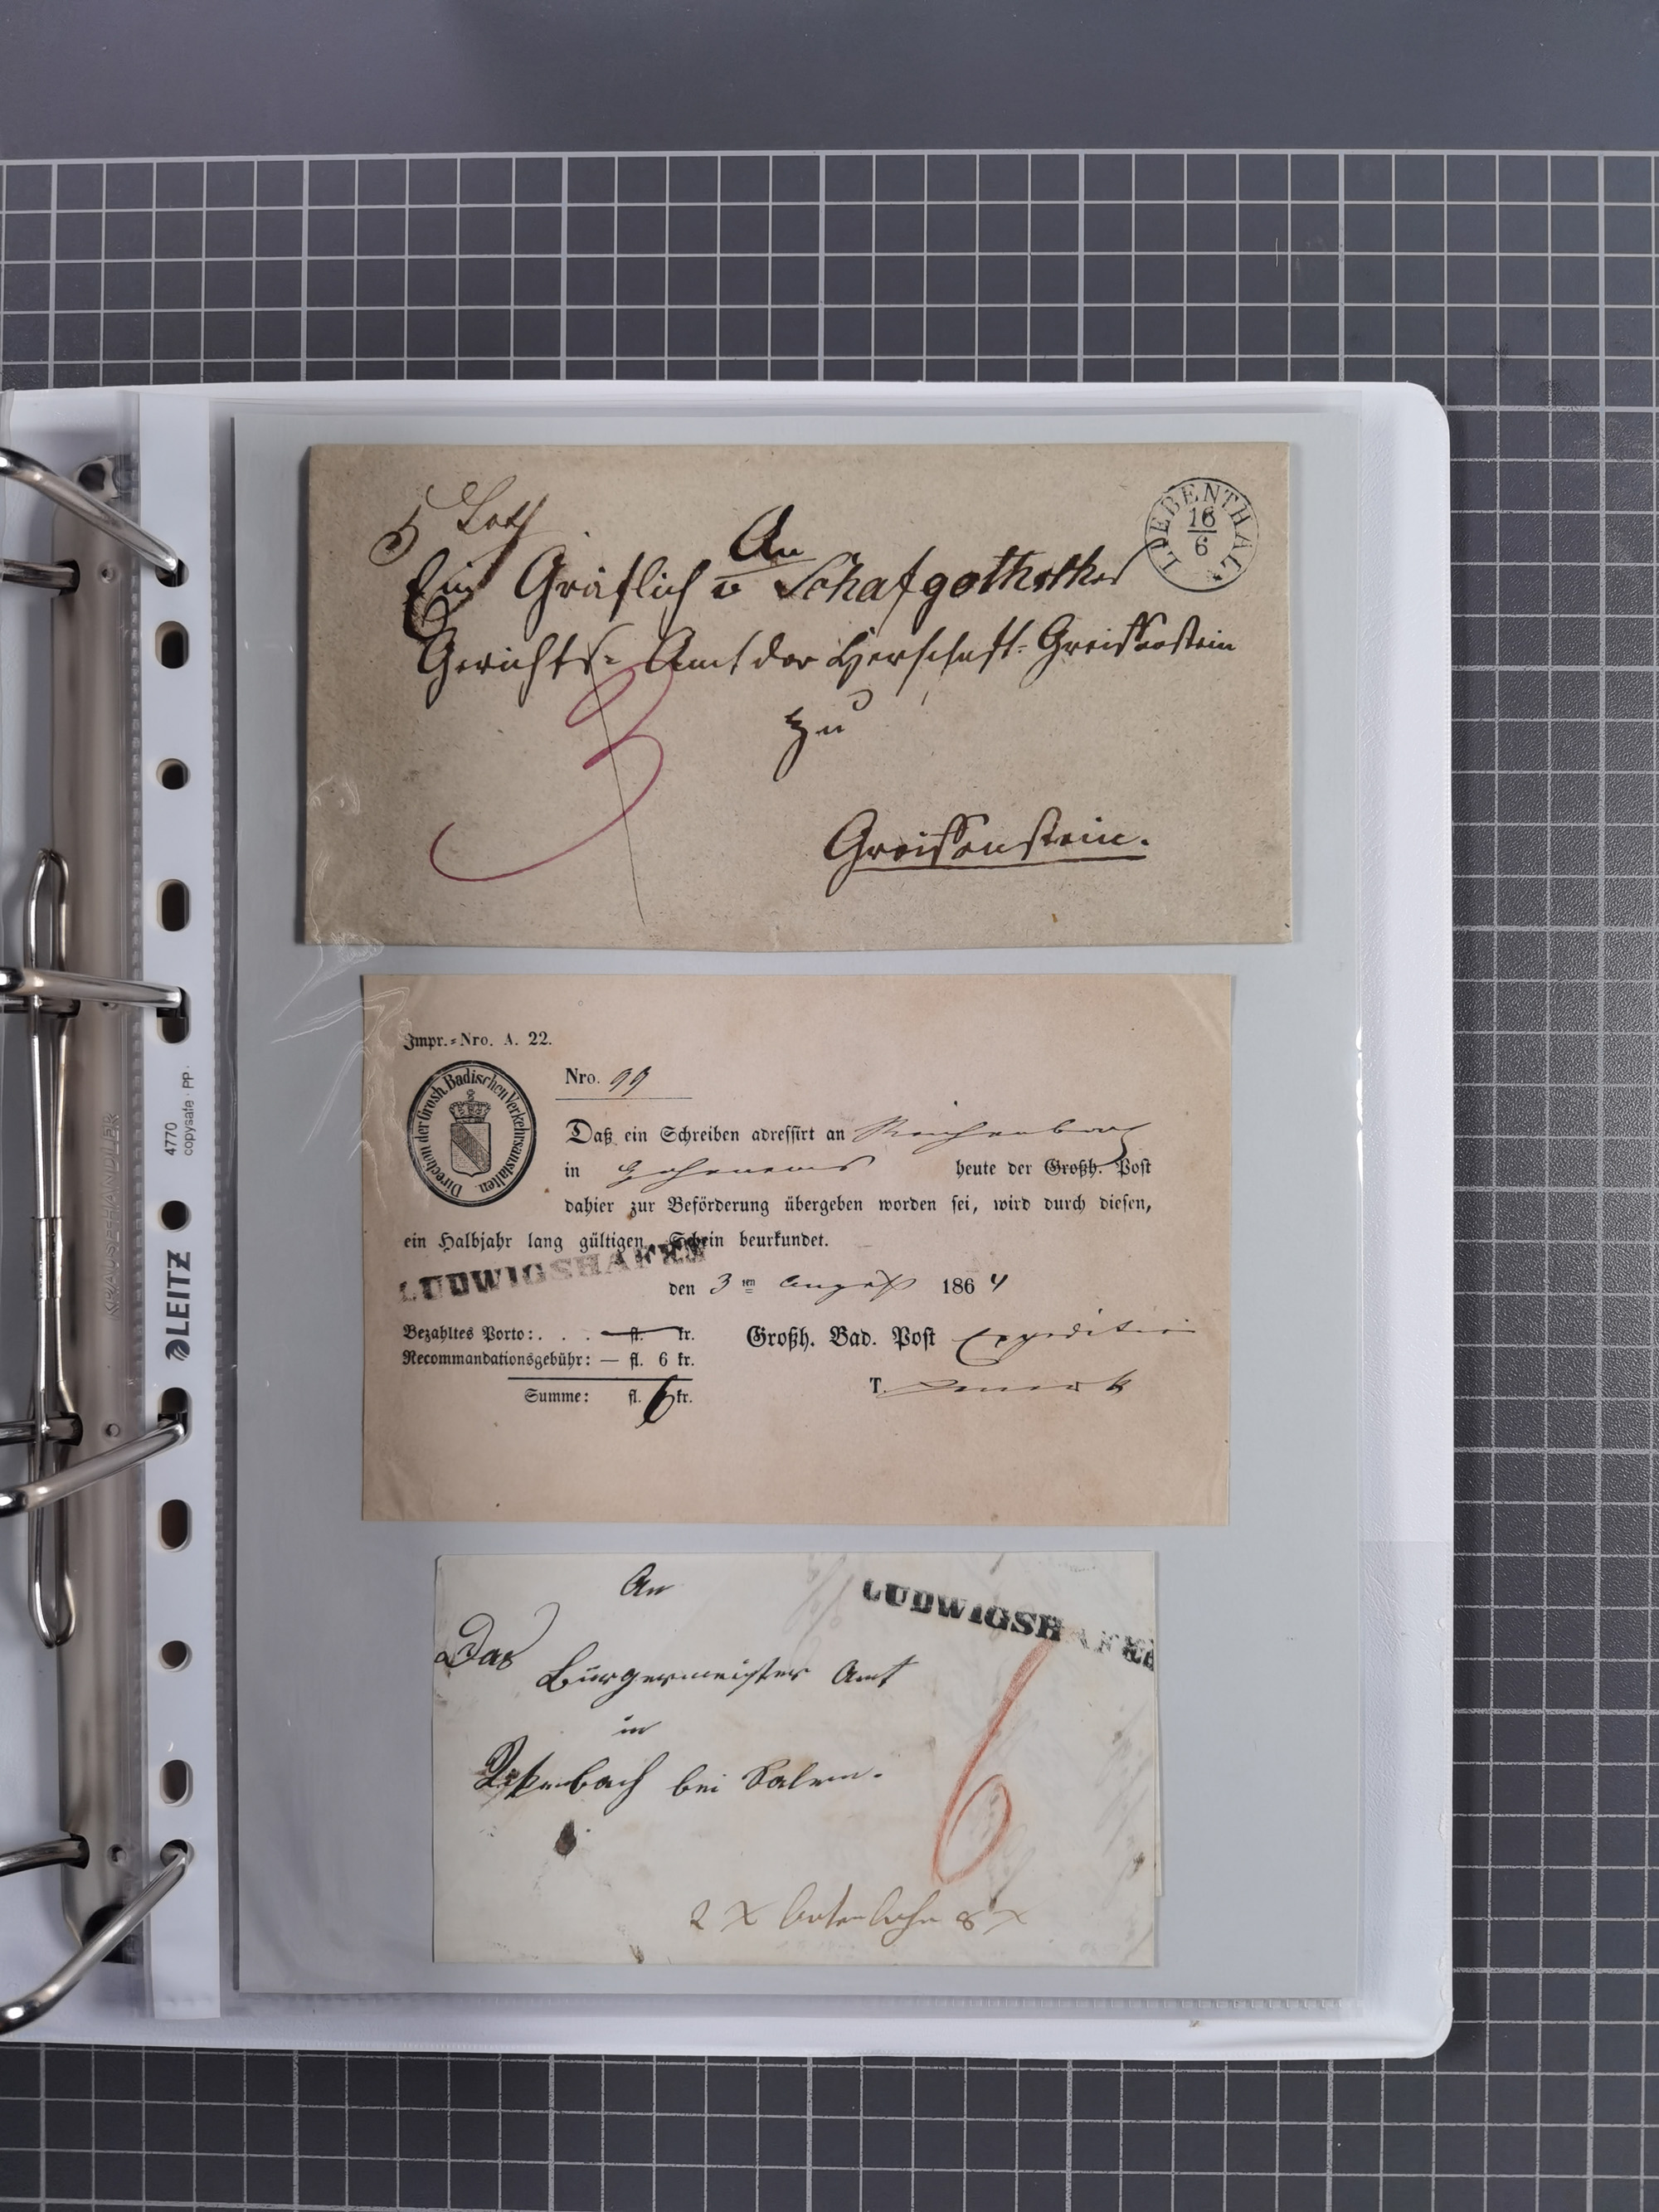 5 Loth
An
Ein Gräflich v Schafgothsches
Gerichts= Amt der Herschaft= Greiffenstein
zu
Greiffenstein.
LIEBENTHAL
16
6
3
Impr.=Nro. A. 22.
Direction der Grosh. Badischen Verkehrsanstalten.
Nro. 99
Daß ein Schreiben adressirt an
in Hohenems heute der Großh. Post
dahier zur Beförderung übergeben worden sei, wird durch diesen,
ein Halbjahr lang gültigen Schein beurkundet.
LUDWIGSHAFEN
den 3ten August 1864
Bezahltes Porto: . . . fl. kr.
Recommandationsgebühr: — fl. 6 kr.
Summe: fl. 6 kr.
Großh. Bad. Post Expedition
T.
An
Das
Bürgermeister Amt
in
bei Salem.
LUDWIGSHAFE
6
2 x botenlohn 8 x
4770
copysafe · PP ·
LEITZ
KRAUSEHÄNDLER